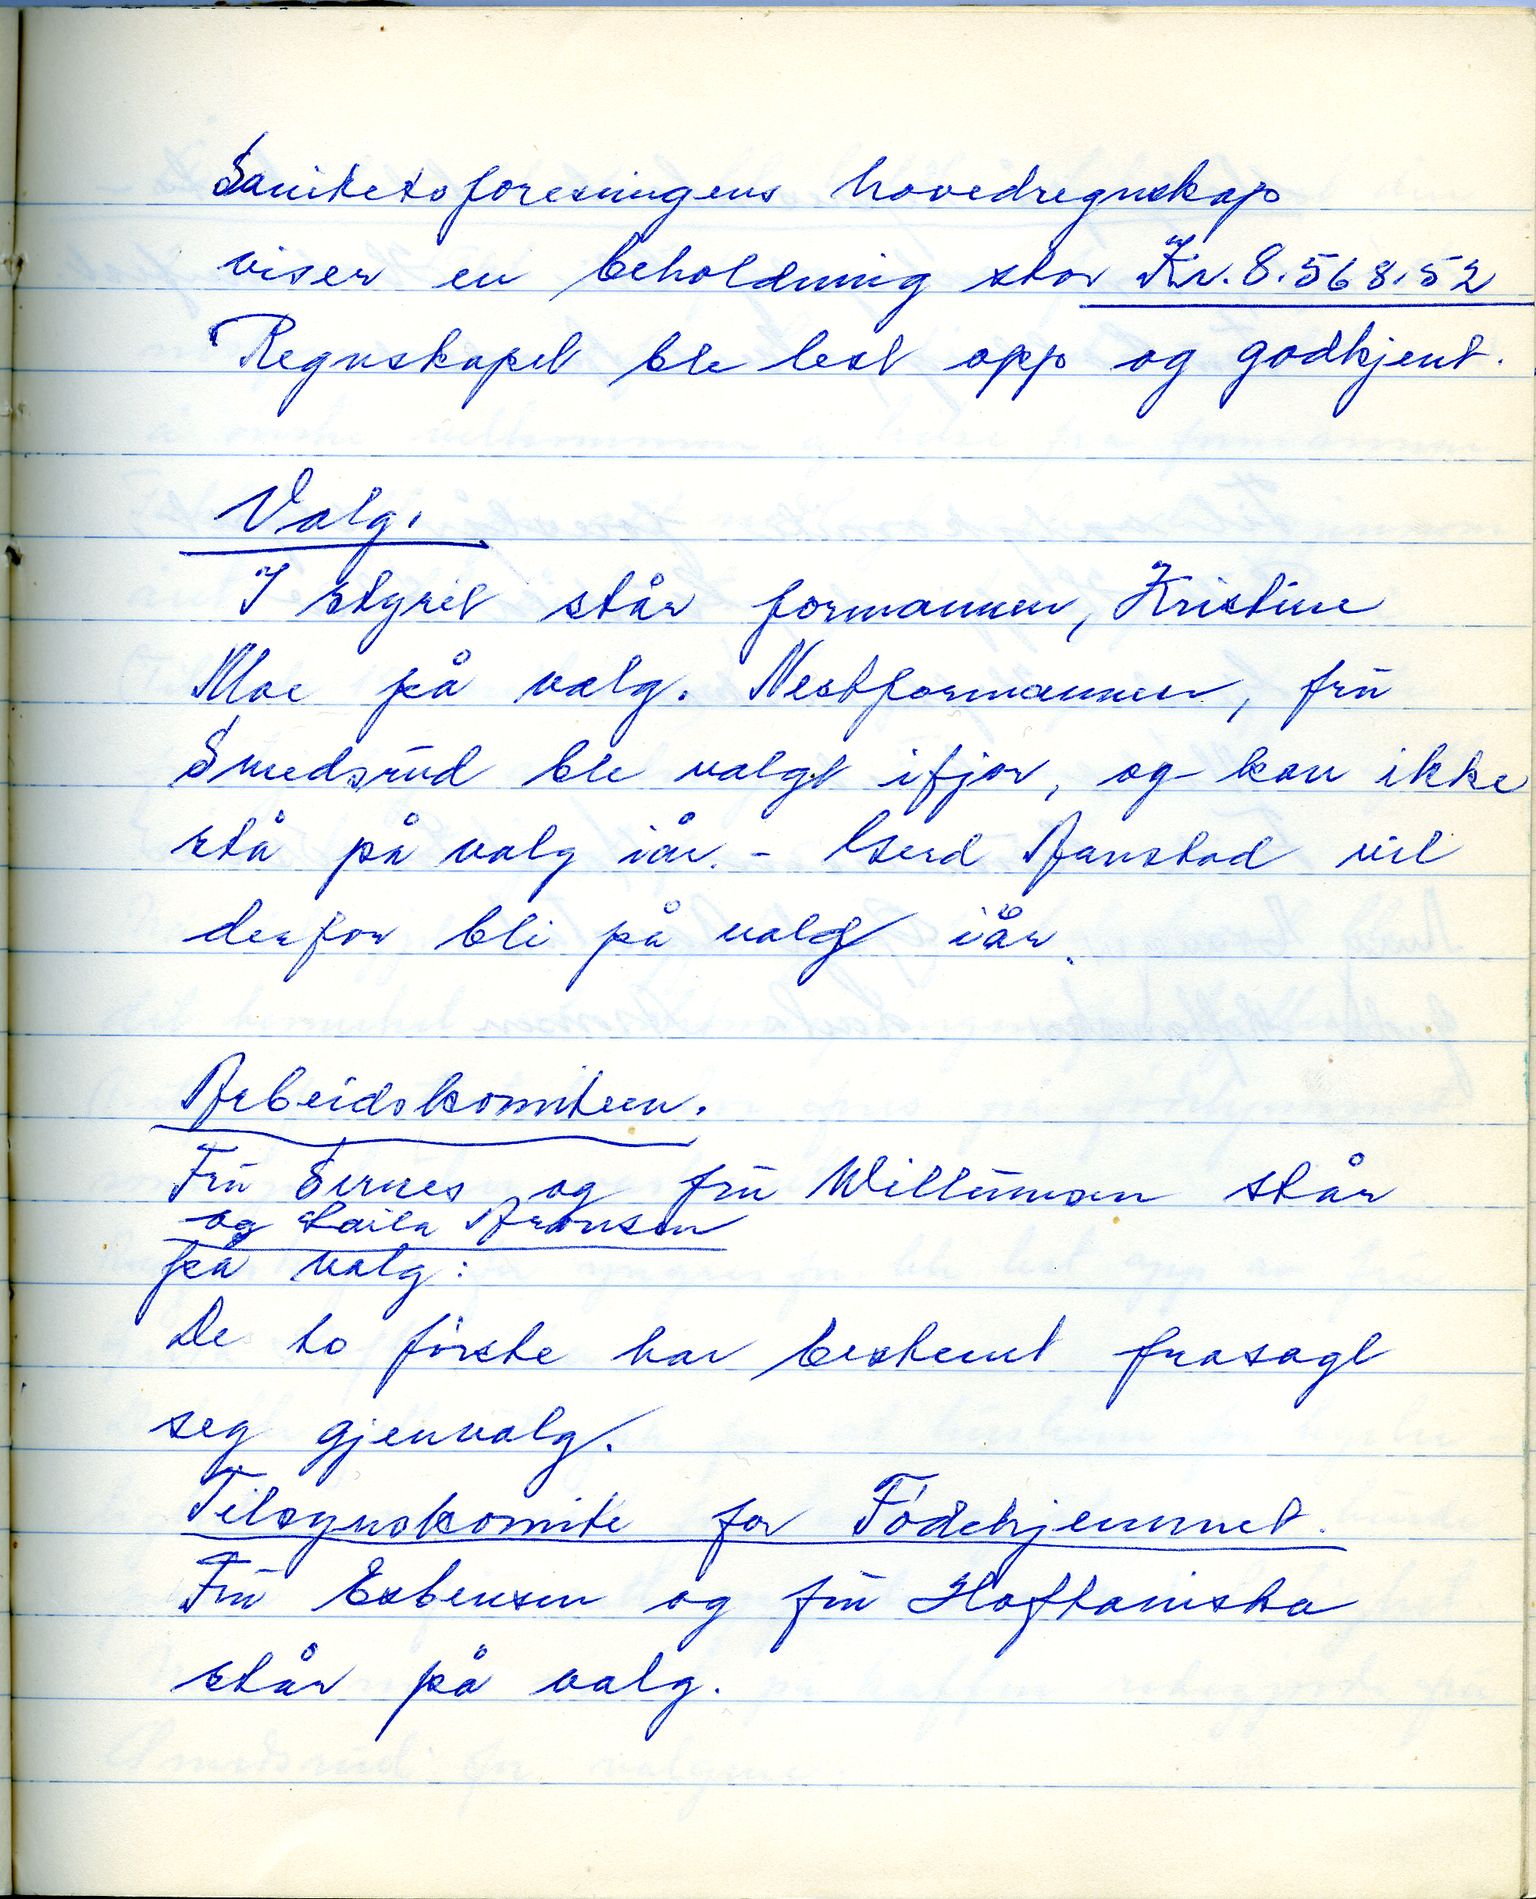 Sanitetsforeningens hovedregnskap
viser en beholdning stor Kr. 8.568,52
Regnskapet ble lest opp og godkjent.
Valg.
I styret står formannen, Kristine
Moe på valg. Nestformannen, frü
Smedsrüd ble valgt ifjor, og kan ikke
stå på valg iår. - Gerd Ranstad vil
derfor bli på valg iår.
Arbeidskomiteen.
Frü Sernes og frü Willümsen står
og Laila Aronsen
på valg:
De to förste har bestemt frasagt
seg gjenvalg.
Tilsynskomite for Födehjemmet.
Frü Esbensen og frü Hoftaniska
står på valg.